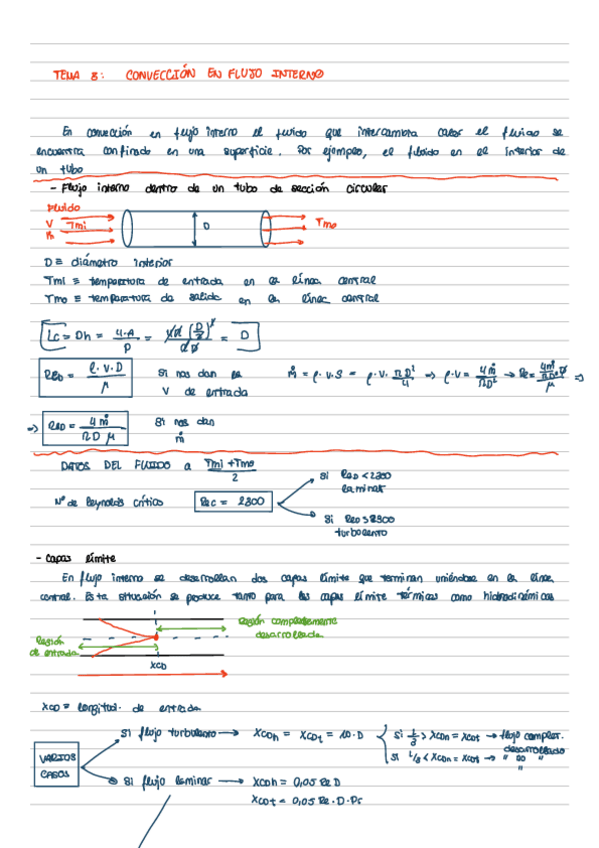 TEMA 8: CONVECCIÓN EN FLUJO INTERNO
En convección en flujo interno el fluido que intercambia calor el fluido se
encuentra confinado en una superficie. Por ejemplo, el fluido en el interior de
un tubo
- Flujo interno dentro de un tubo de sección circular
Fluido
V Tmi
ṁ
D
Tmo
D ≡ diámetro interior
Tmi ≡ temperatura de entrada en la línea central
Tmo ≡ temperatura de salida en la línea central
Lc = Dh = 4·A / P = = D
ReD = ρ·V·D / μ si nos dan la V de entrada
ṁ = ρ·V·S = ρ·V· πD²/4 => ρ·V = 4ṁ / πD² → Re = =>
=> ReD = 4ṁ / πDμ si nos dan ṁ
DATOS DEL FLUIDO a Tmi + Tmo / 2
Si ReD < 2300
laminar
Nº de Reynolds crítico Rec = 2300
Si ReD > 2300
turbulento
- Capas límite
En flujo interno se desarrollan dos capas límite que terminan uniéndose en la línea
central. Esta situación se produce tanto para las capas límite térmicas como hidrodinámicas
Región completamente
desarrollada
Región
de entrada
XCD
XCD = longitud de entrada
Si flujo turbulento → XCDh = XCDt = 10·D
si L/D > XCDh = XCDt → flujo complet.
desarrollado
si L/D < XCDh = XCDt → " no "
"
VARIOS
CASOS
Si flujo laminar → XCDh = 0,05 Re D
XCDt = 0,05 Re·D·Pr